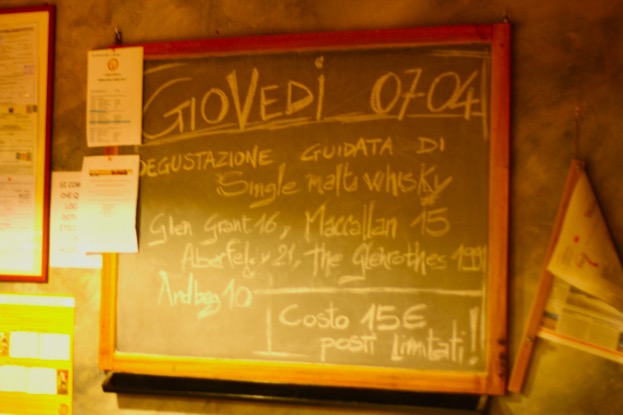 GIOVEDì 07-04
DEGUSTAZIONE GUIDATA DI
Single malt whisky
Glen Grant 16, Maccallan 15
Aberfeldy 21, The Glenrothes 1991
Ardbeg 10
Costo 15€
posti limitati!